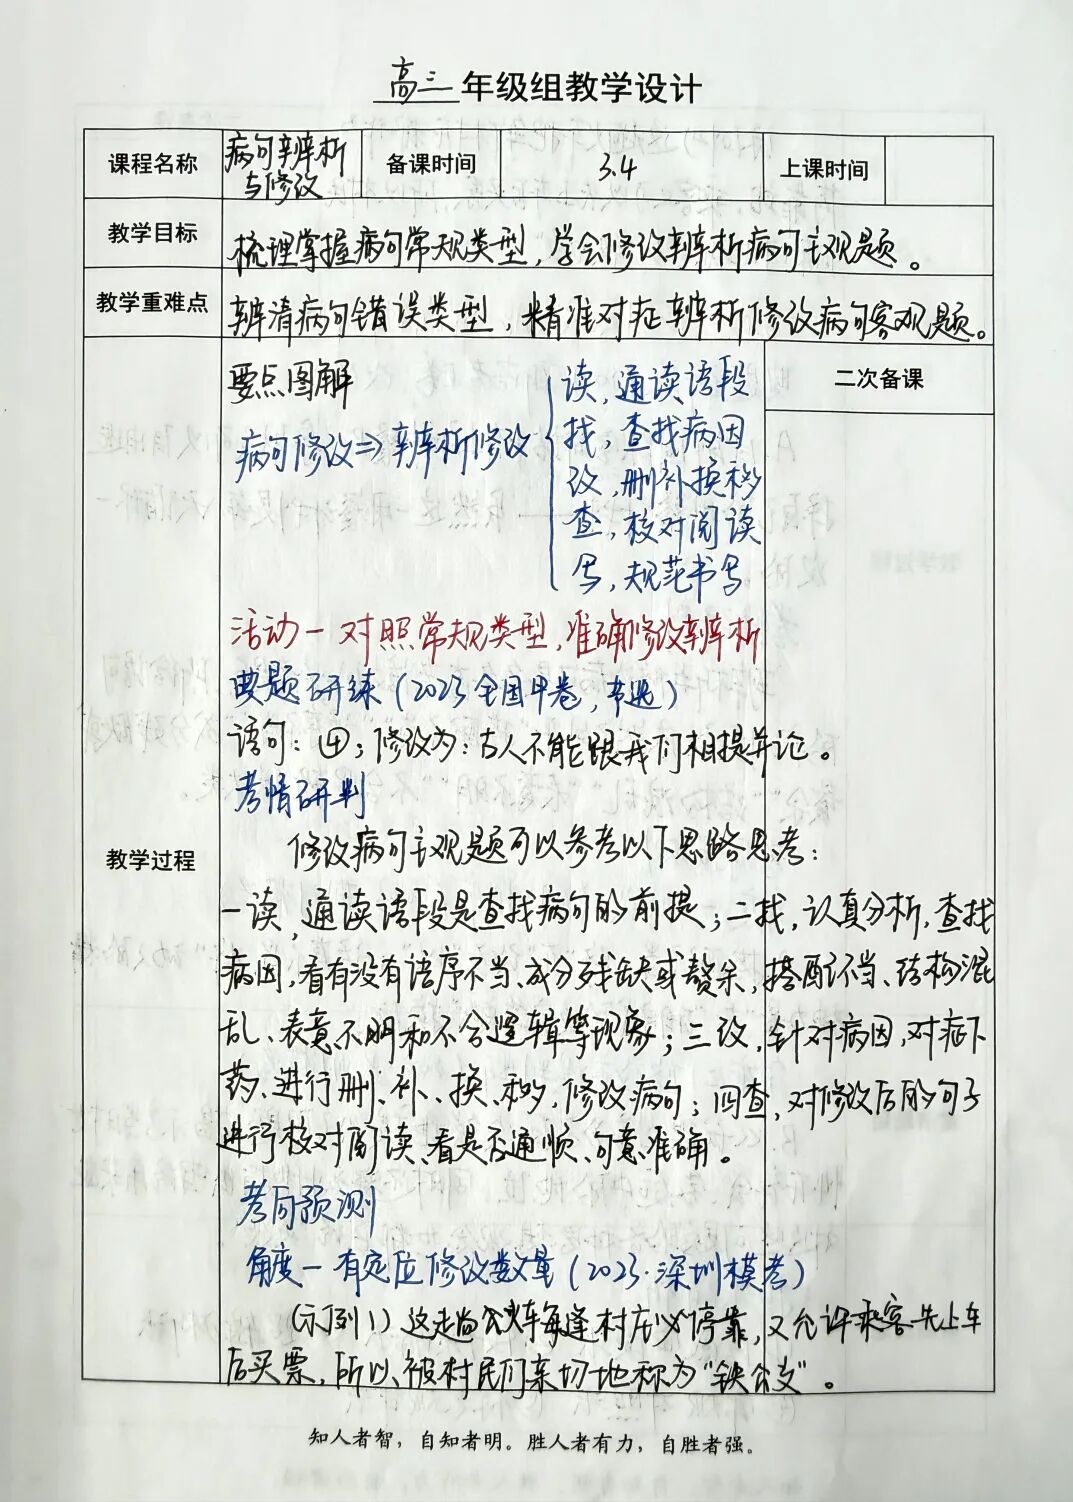 高三年级组教学设计
课程名称 病句辨析与修改 备课时间 3.4 上课时间
教学目标 梳理掌握病句常规类型，学会修改辨析病句主观题。
教学重难点 辨清病句错误类型，精准对症辨析修改病句客观题。
教学过程
二次备课
要点图解
病句修改⇒辨析修改
读，通读语段
找，查找病因
改，删补换移
查，核对阅读
写，规范书写
活动一 对照常规类型，准确修改辨析
典题研练（2023全国甲卷，节选）
语句：④；修改为：古人不能跟我们相提并论。
考情研判
修改病句主观题可以参考以下思路思考：
一读，通读语段是查找病句的前提；二找，认真分析，查找
病因，看有没有语序不当、成分残缺或赘余，搭配不当、结构混
乱、表意不明和不合逻辑等现象；三改，针对病因，对症下
药、进行删、补、换、移，修改病句；四查，对修改后的句子
进行核对阅读、看是否通顺、句意准确。
考向预测
角度一 有定位修改数量（2023·深圳模考）
（示例1）这趟火车每逢村庄必停靠，又允许乘客先上车
后买票，所以，被村民们亲切地称为“铁公交”。
知人者智，自知者明。胜人者有力，自胜者强。